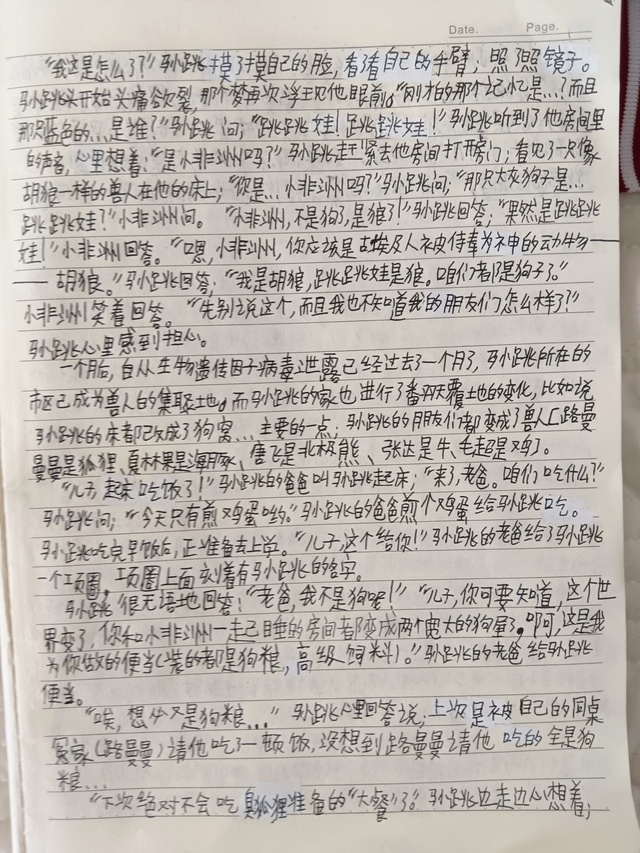 Date.    Page.
“我这是怎么了?”马小跳摸了摸自己的脸，看了看自己的手臂；照了照镜子。
马小跳头开始头痛欲裂，那个梦再次浮现他眼前。“刚才的那个记忆是...?而且
那只蓝色的...是谁?”马小跳问；“跳跳娃!跳跳娃!”马小跳听到了他房间里
的声音，心里想着；“是小非洲吗?”马小跳赶紧去他房间打开房门；看见了一只像
胡狼一样的兽人在他的床上；“你是...小非洲吗?”马小跳问；“那只大灰狗子是...
跳跳娃?”小非洲问。“小非洲，不是狗子，是狼!”马小跳回答；“果然是跳跳
娃!”小非洲回答。“嗯，小非洲，你应该是古埃及人被侍奉为神的动物——
—胡狼。”马小跳回答；“我是胡狼，跳跳娃是狼。咱们都是狗子了。”
小非洲笑着回答。“先别说这个，而且我也不知道我的朋友们怎么样了?”
马小跳心里感到担心。
一个月后，自从生物遗传因子病毒泄露已经过去了一个月了，马小跳所在的
市区已成为兽人的集聚地。而马小跳的家也进行了番天覆地的变化，比如说
马小跳的床都改成了狗窝...主要的一点；马小跳的朋友们都变成了兽人〔路曼
曼是狐狸、夏林果是海豚、唐飞是北极熊、张达是牛、毛超是鸡〕。
“儿子，起床吃饭了!”马小跳的爸爸叫马小跳起床；“来了，老爸。咱们吃什么?”
马小跳问；“今天只有煎鸡蛋哟。”马小跳的爸爸煎个鸡蛋给马小跳吃。
马小跳吃完早饭后，正准备去上学。“儿子，这个给你!”马小跳的老爸给了马小跳
一个项圈，项圈上面刻着有马小跳的名字。
马小跳很无语地回答：“老爸，我不是狗呢!”“儿子，你可要知道，这个世
界变了，你和小非洲一起睡的房间都变成两个宽大的狗屋了。啊呵，这是我
为你做的便当（装的都是狗粮，高级饲料）。”马小跳的老爸给马小跳
便当。
“唉，想必又是狗粮...”马小跳心里回答说；上次是被自己的同桌
冤家（路曼曼）请他吃了一顿饭，没想到路曼曼请他吃的全是狗
粮...
“下次绝对不会吃臭狐狸准备的“大餐”了。”马小跳边走边心想着；